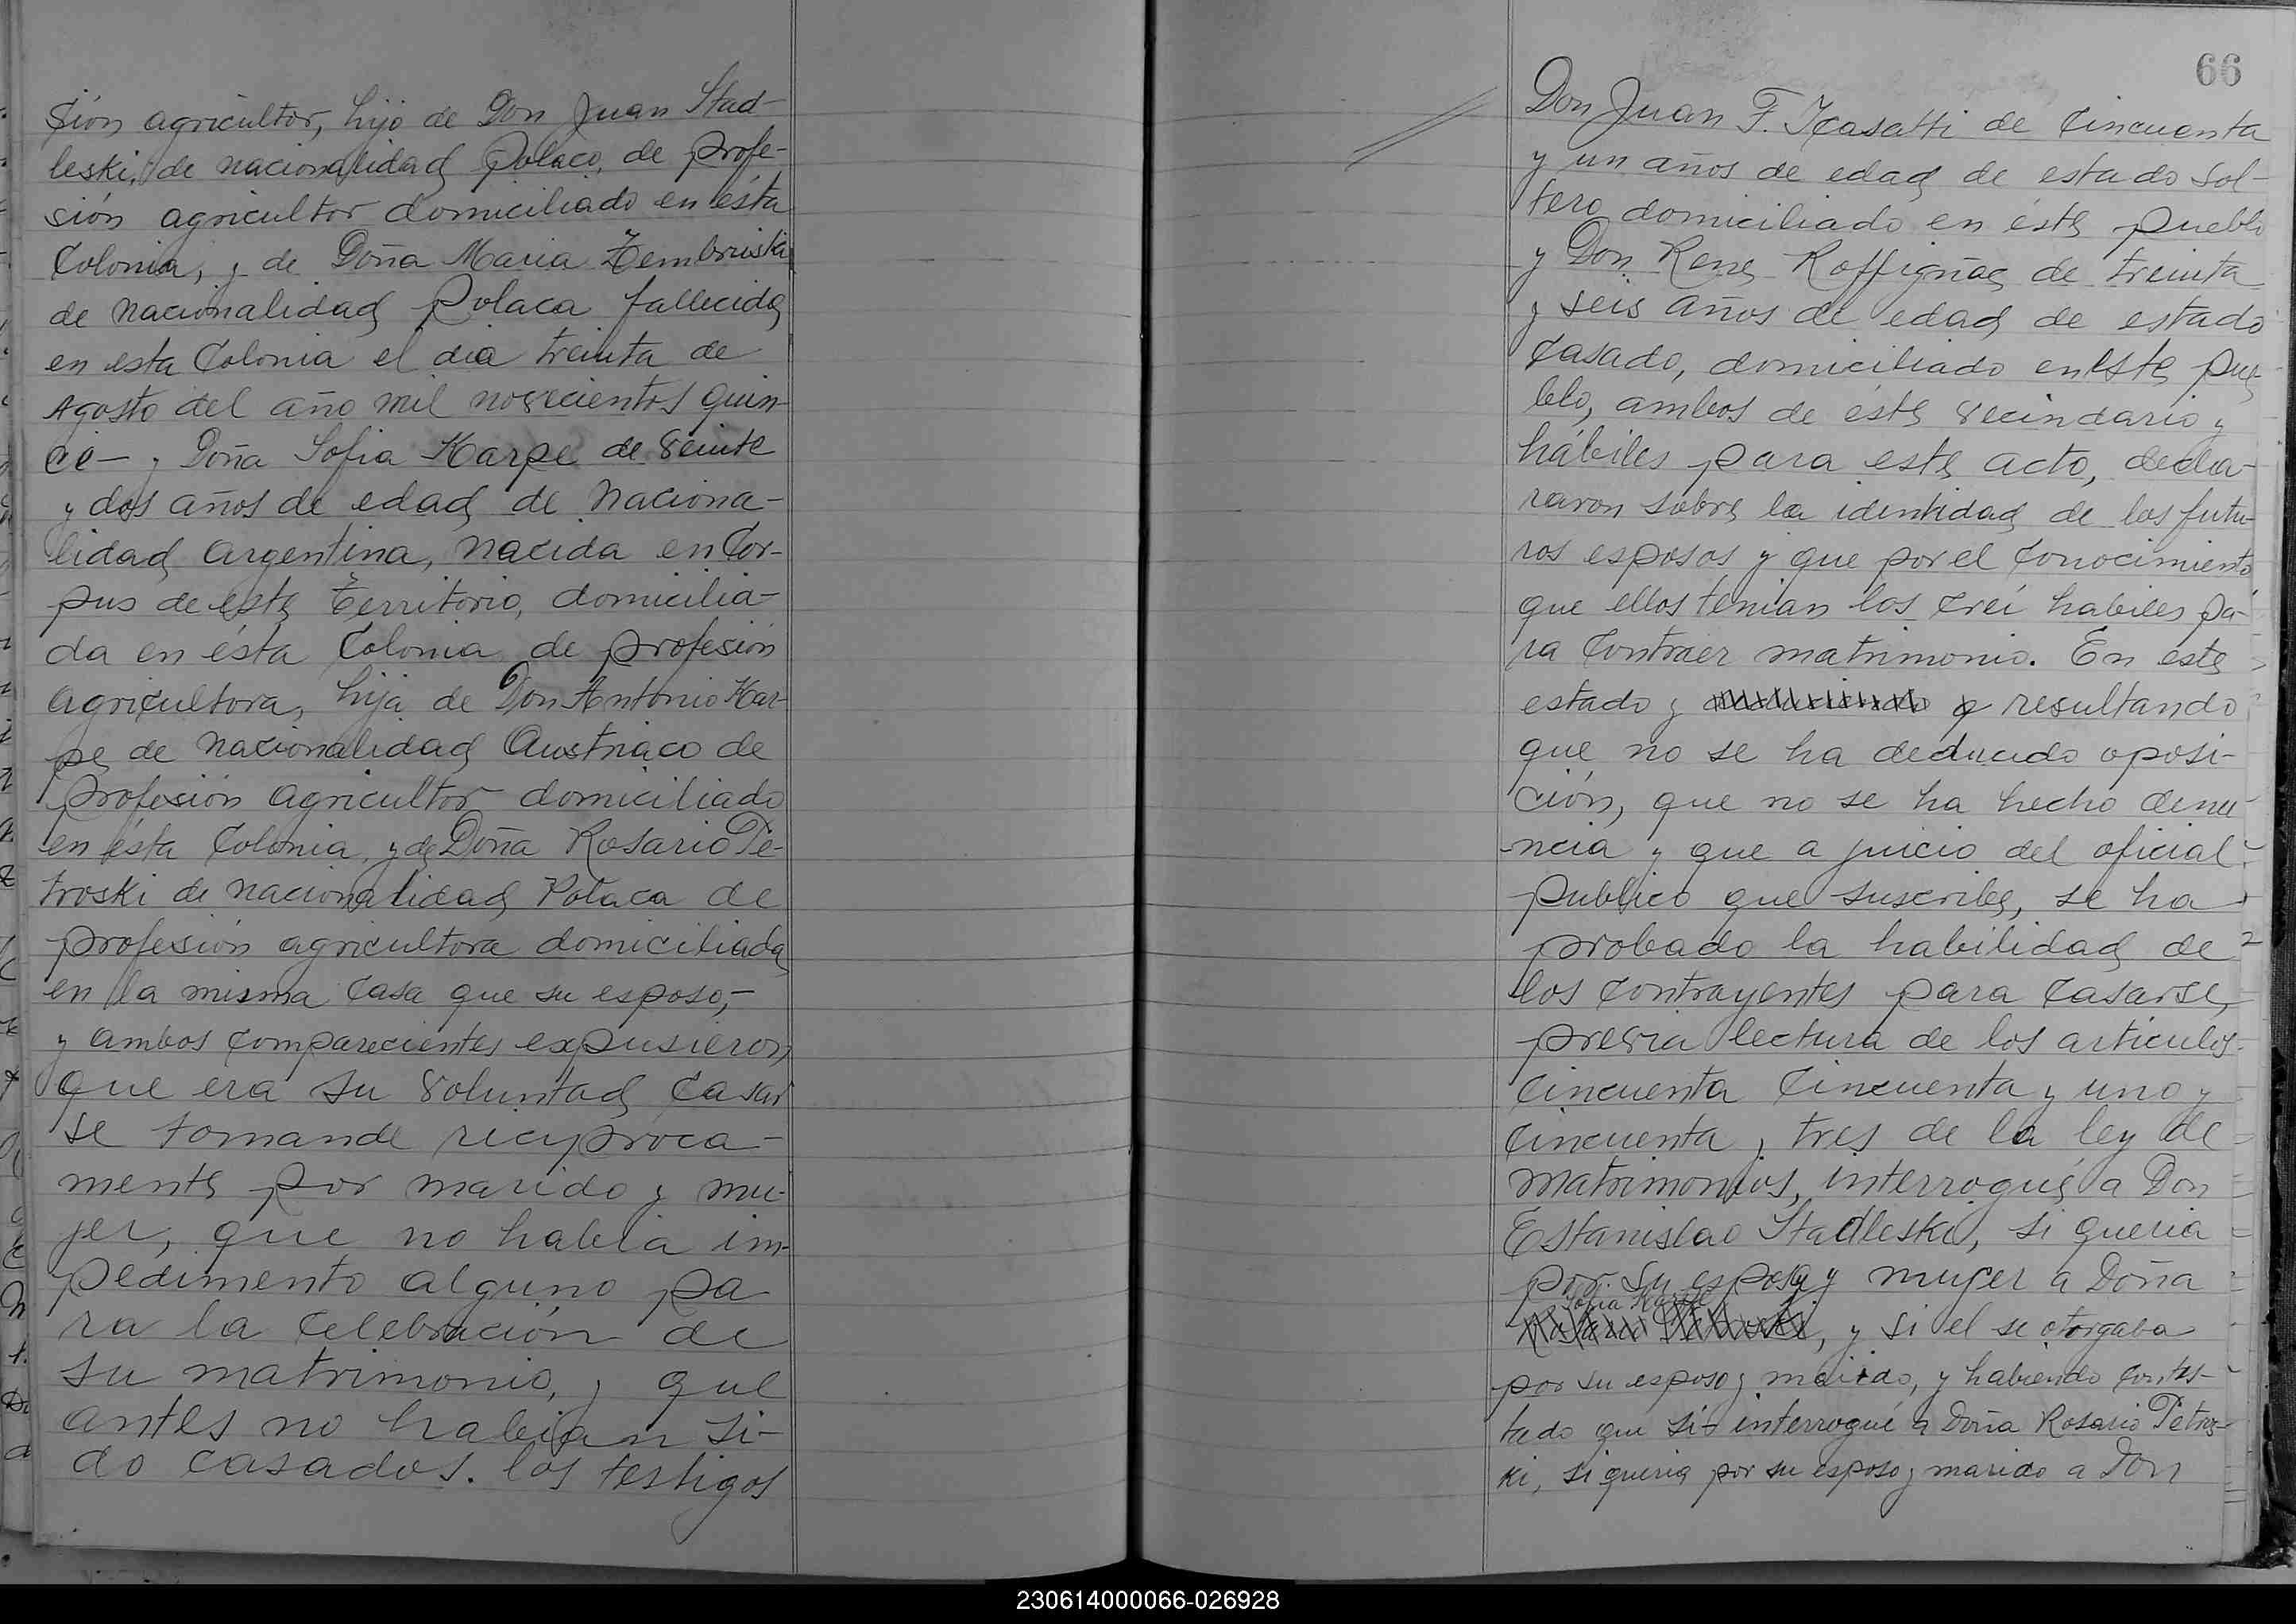 sión agricultor, hijo de Don Juan Stad-
leski, de nacionalidad Polaco, de profe-
sión agricultor domiciliado en ésta
Colonia, y de Doña Maria Zembriska
de nacionalidad Polaca fallecida
en esta Colonia el dia treinta de
Agosto del año mil novecientos quin-
ce- y Doña Sofia Karpe de veinte
y dos años de edad de naciona-
lidad argentina, nacida en Cor-
pus de este territorio, domicilia-
da en ésta Colonia de profesión
agricultora, hija de Don Antonio Kar-
pe de nacionalidad Austriaco de
profesión agricultor domiciliado
en ésta Colonia, y de Doña Rosario Pe-
troski de nacionalidad Polaca de
profesión agricultora domiciliada
en la misma casa que su esposo,-
y ambos comparecientes expusieron
que era su voluntad casar
se tomande recyproca-
mente por marido y mu-
jer, que no habia im-
pedimento alguno pa
ra la celebración de
su matrimonio, y que
antes no habian si-
do casados. los testigos
66
Don Juan F. Icasatti de cincuenta
y un años de edad de estado sol-
tero domiciliado en éste pueblo
y Don Rene Roffignac de treinta
y seis años de edad de estado
casado, domiciliado en este pue-
blo, ambos de éste vecindario y
hábiles para este acto, decla-
raron sobre la identidad de los futu-
ros esposos y que por el conocimiento
que ellos tenian los creí habiles pa-
ra contraer matrimonio. En este
estado y resultando
que no se ha deducido oposi-
ción, que no se ha hecho denu-
ncia y que a juicio del oficial
publico que suscribe, se ha
probado la habilidad de
los contrayentes para casarse,
previa lectura de los articulos
cincuenta cincuenta y uno y
cincuenta y tres de la ley de
matrimonios, interrogué a Don
Estanislao Stadleski, si queria
por su esposa y mujer a Doña
Sofia Karpe
Rosario Petroski, y si el se otorgaba
por su esposo y marido, y habiendo contes-
tado que si interrogué a Doña Rosario Petros-
ki, si queria por su esposo y marido a Don
230614000066-026928